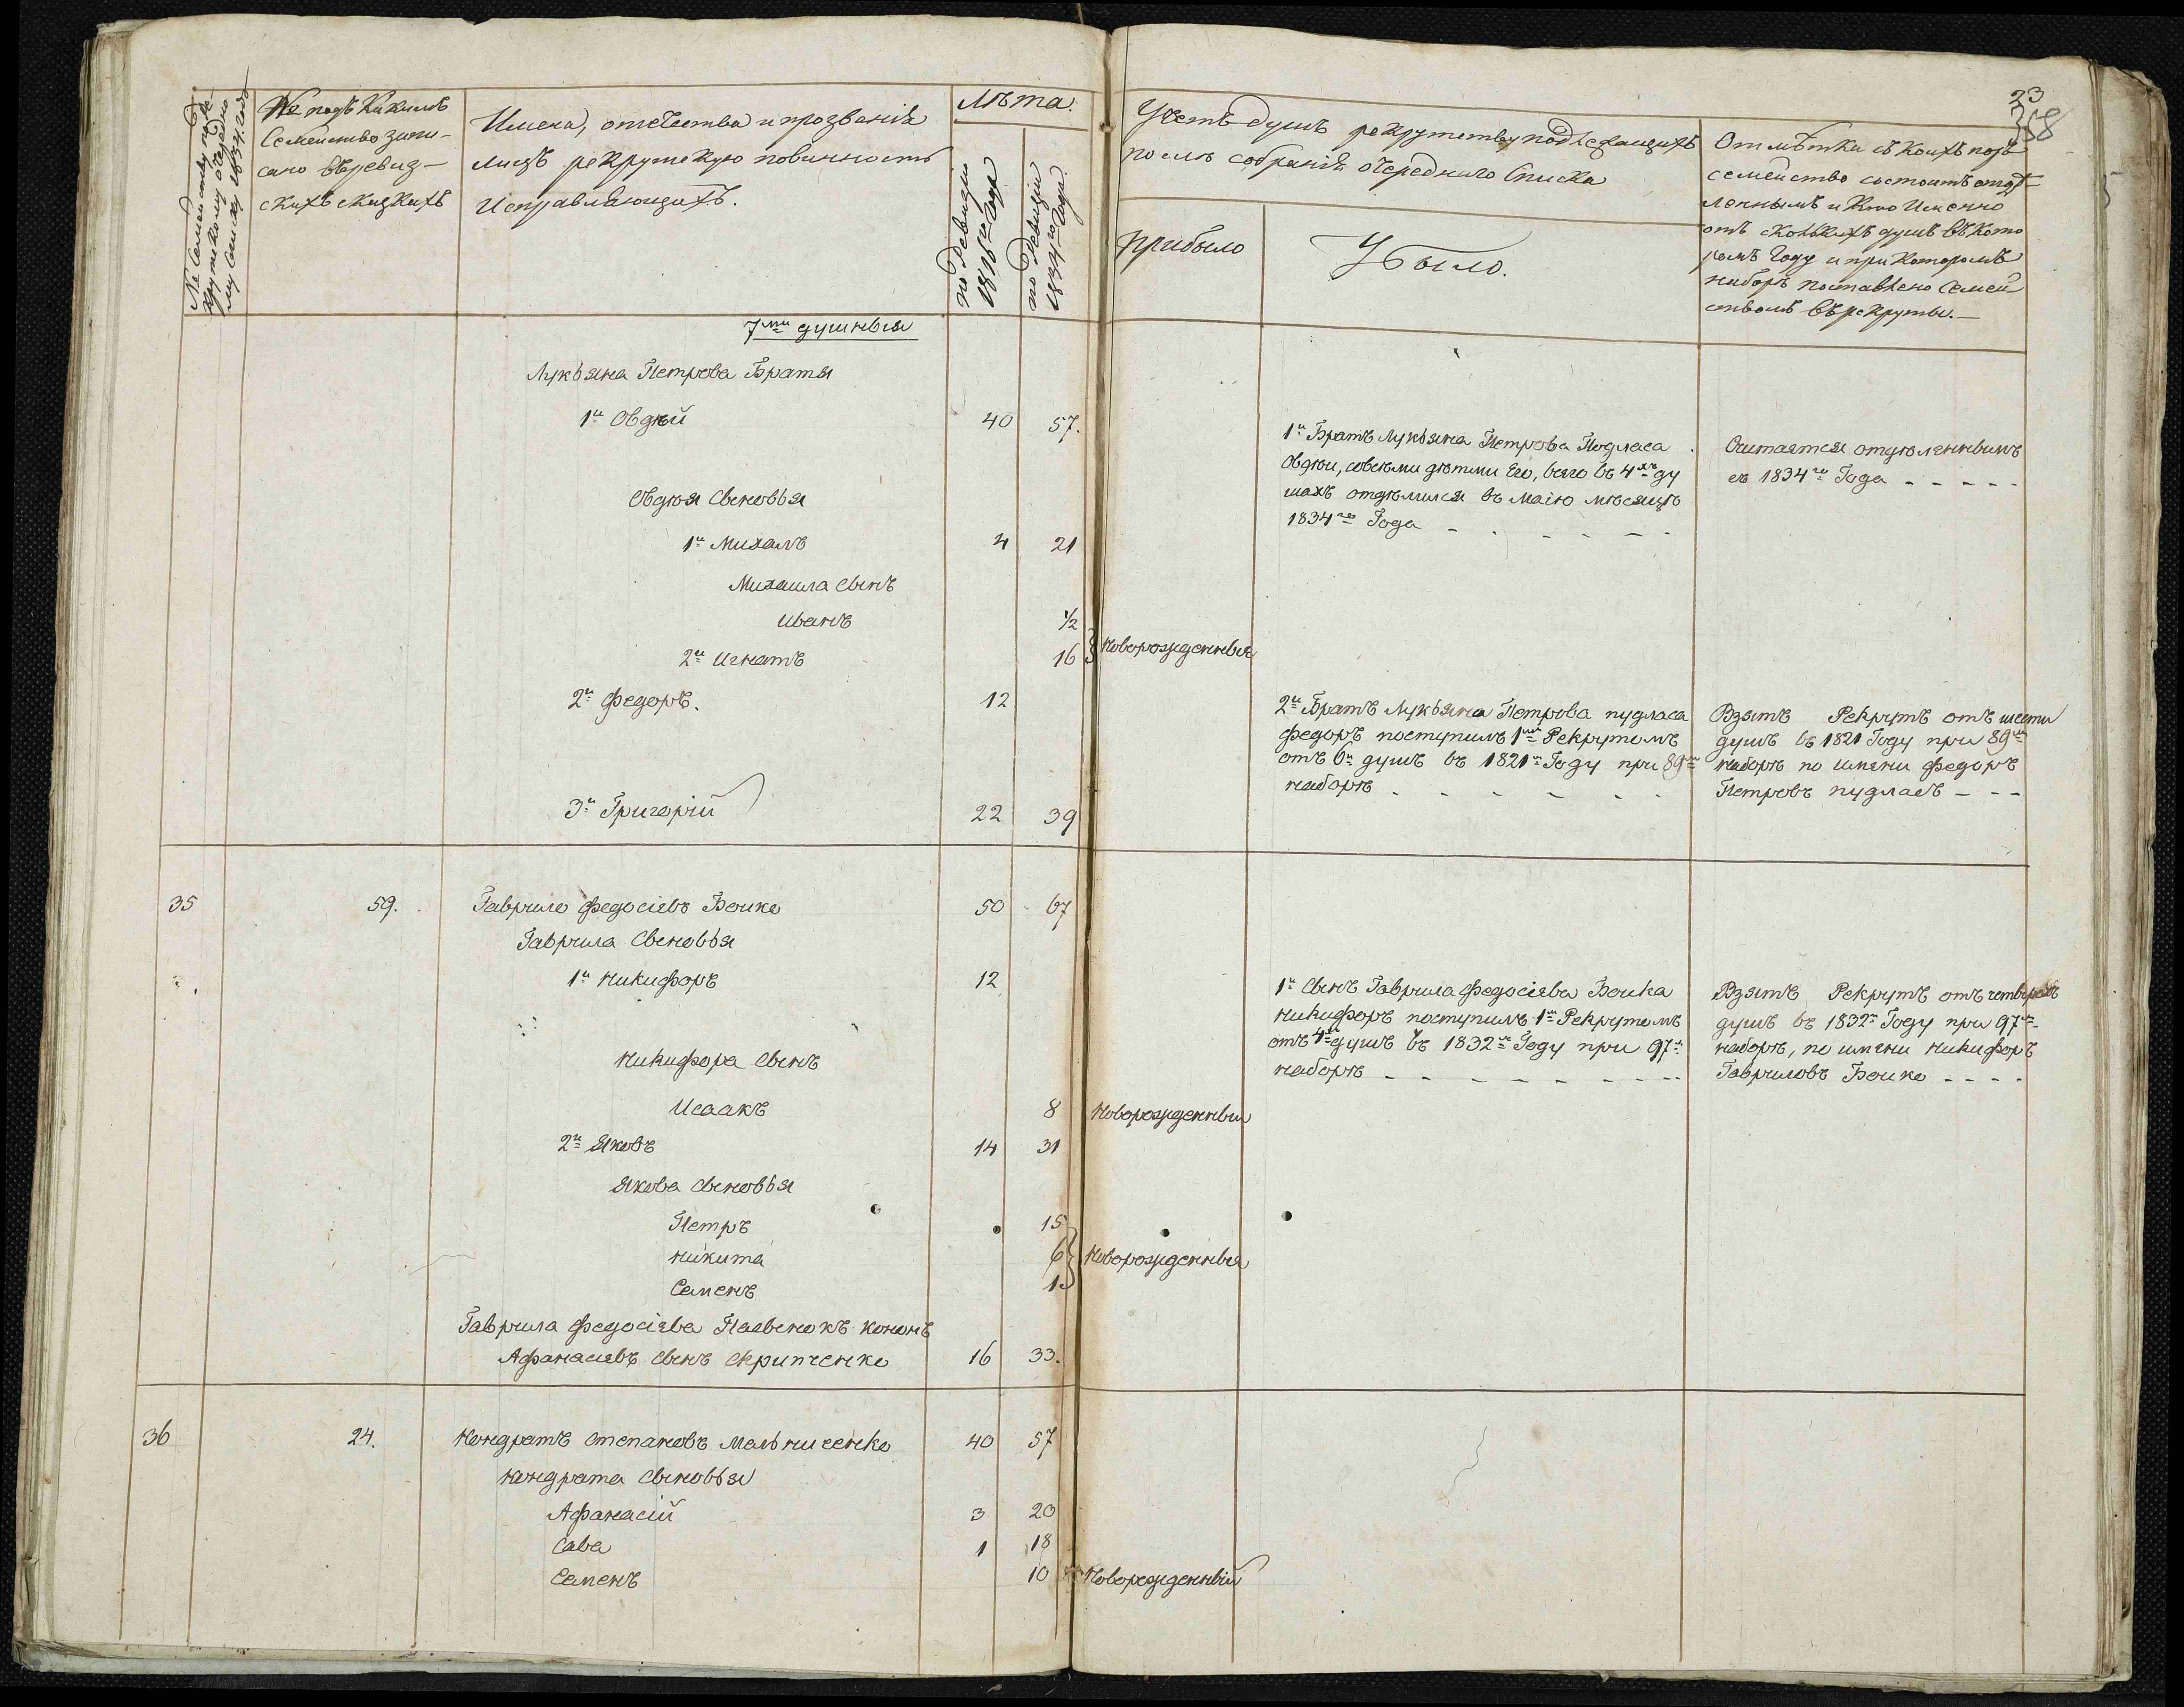 23
358
№ Семейству по ре-
крутскому очередно
му списку 1834 года
№ подъ какимъ
Семейство запи-
сано въ ревиз-
скихъ сказкахъ
Имена, отечества и прозванія
лицъ рекрутскую повинность
Исправляющихъ.
Лѣта.
по Ревизіи
1816го года
по Ревизіи
1834го года.
Учетъ душъ рекрутству подлежащихъ
послѣ собранія очереднаго Списка
прибыло
Убыло.
Отмѣтки съ коихъ поръ
семейство состоитъ отдѣ-
леннымъ и кто Именно
отъ сколькихъ душъ въ кото
ромъ Году и при которомъ
наборѣ поставлено Семей-
ствомъ въ рекруты.
7ми душныя
Лукьяна Петрова Братья
1й Овдѣй 40 57.
1й Братъ Лукьяна Петрова Подласа
Овдѣй, совсеми дѣтми Его, всего въ 4хъ ду
шахъ отдѣлился въ маію мѣсяцѣ
1834го Года
Считается отдѣленнымъ
съ 1834го Года
Овдѣя Сыновья
1й Михаилъ 4 21
Михаила Сынъ
Иванъ 1/2
2й Игнатъ 16 Новорожденныя
2й Федоръ. 12
2й Братъ Лукьяна Петрова пудласа
Федоръ поступилъ 1мъ Рекрутомъ
отъ 6и душъ въ 1821м Году при 89м
наборѣ
Взятъ Рекрутъ отъ шести
душъ въ 1821 Году при 89м
наборѣ по имяни Федоръ
Петровъ пудласъ
3й Григорій 22 39
35 59. Гаврило Федосіевъ Бойко 50 67
Гаврила Сыновья
1й Никифоръ 12
1й Сынъ Гаврила Федосіева Бойка
Никифоръ поступилъ 1м Рекрутомъ
отъ 4х душъ въ 1832м Году при 97м
наборѣ
Взятъ Рекрутъ отъ четырехъ
душъ въ 1832м Году при 97м
наборѣ, по имяни Никифоръ
Гавриловъ Бойко
Никифора Сынъ
Исаакъ 8 Новорожденный
2й Яковъ 14 31
Якова Сыновья
Петръ 15
Никита 6 Новорожденныя
Семенъ 1
Гаврила Федосіева Пасынокъ Кононъ
Афанасіевъ Сынъ Скрипченко 16 33.
36 24. Кондратъ Степановъ Мельниченко 40 57
Кондрата Сыновья
Афанасій 3 20
Сава 1 18
Семенъ 10 Новорожденный